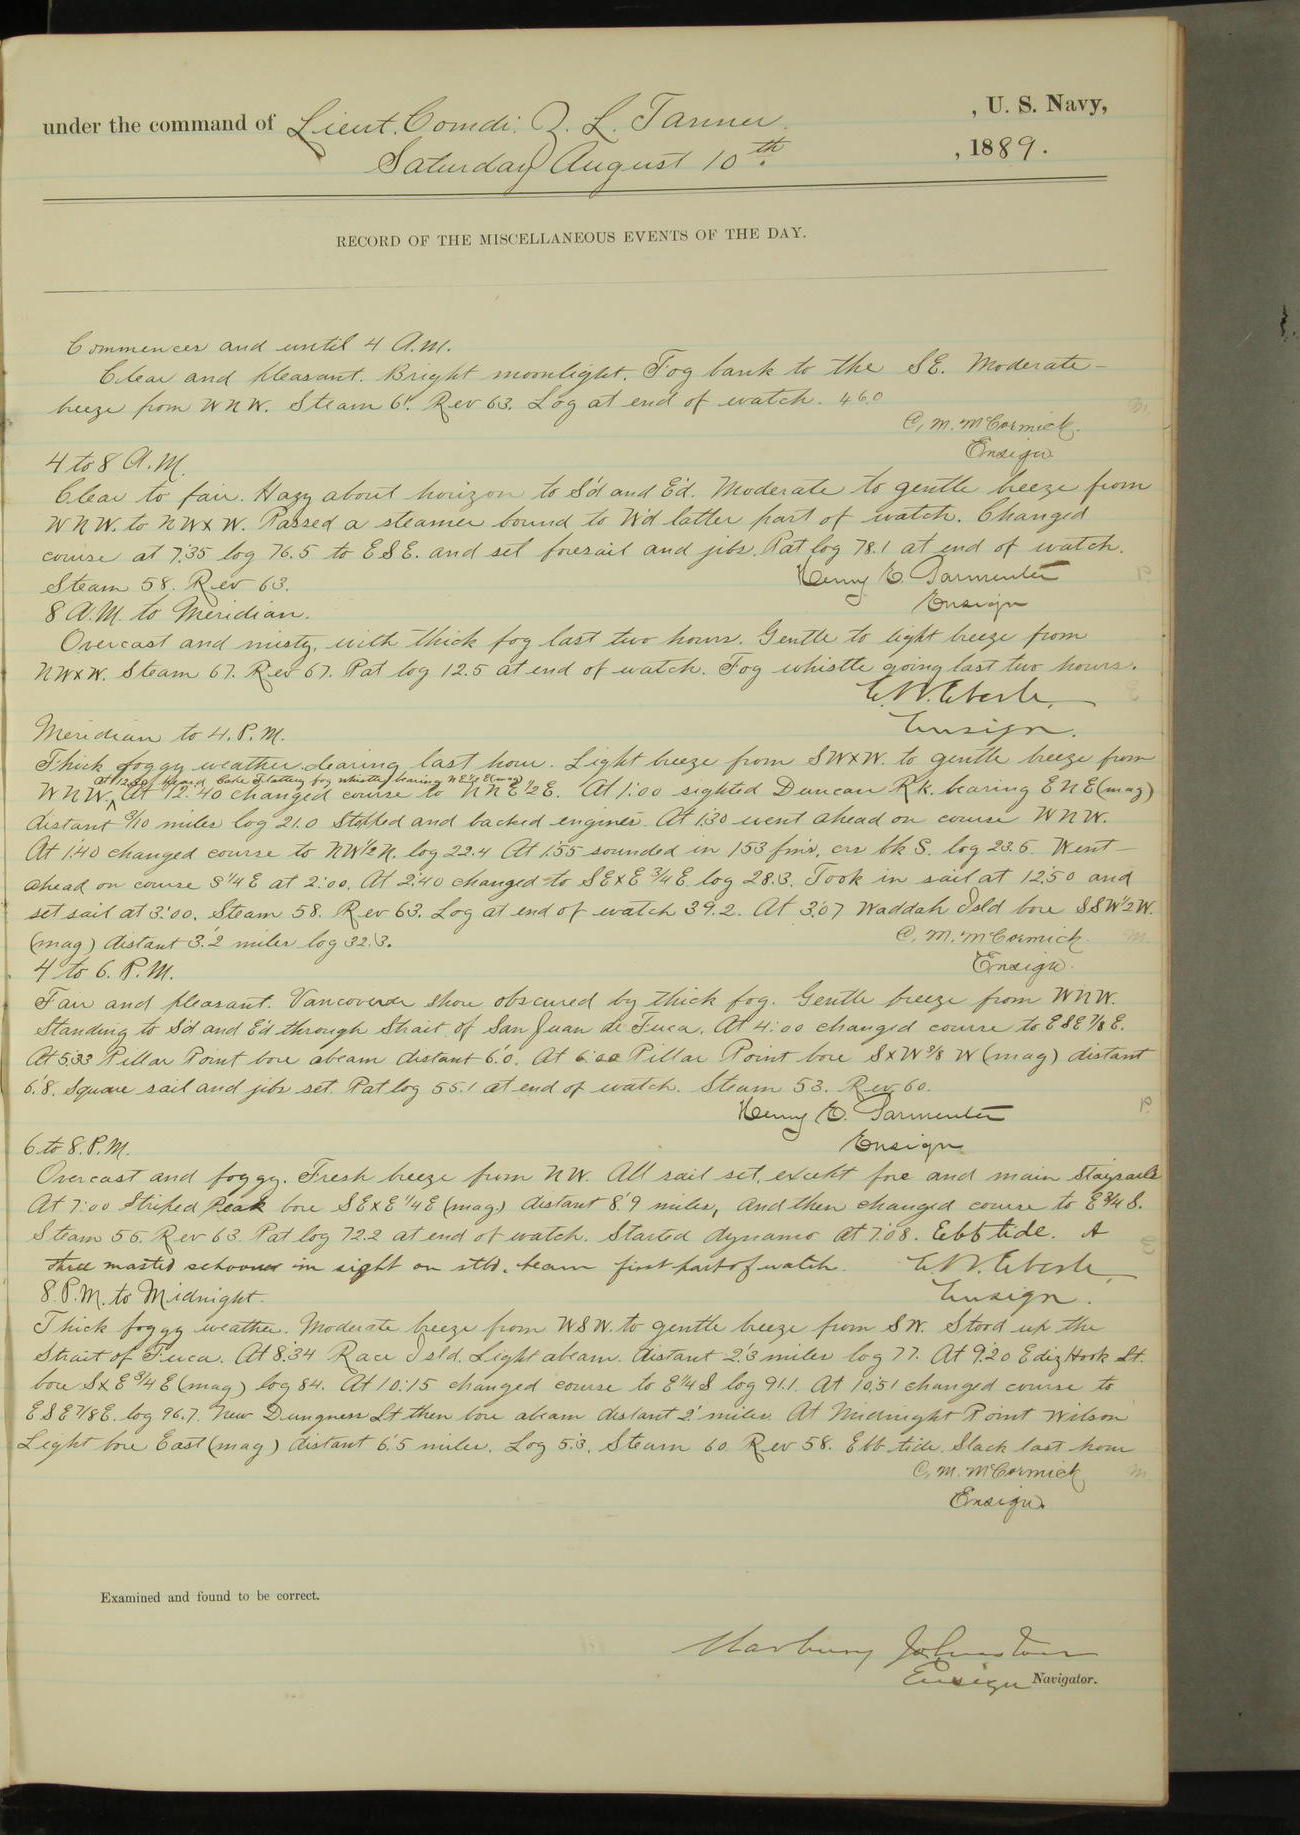 under the command of Lieut. Comdr. Z. L. Tanner , U. S. Navy,
Saturday August 10th. , 1889.
RECORD OF THE MISCELLANEOUS EVENTS OF THE DAY.
Commences and until 4 A.M.
Clear and pleasant. Bright moonlight. Fog bank to the SE. Moderate
breeze from WNW. Steam 61. Rev 63. Log at end of watch. 46.0
C. M. McCormick.
Ensign.
4 to 8 A.M.
Clear to fair. Hazy about horizon to S'd and E'd. Moderate to gentle breeze from
WNW. to NWxW. Passed a steamer bound to W'd latter part of watch. Changed
course at 7:35 log 76.5 to ESE. and set foresail and jibs. Pat log 78.1 at end of watch.
Steam 58. Rev 63.
Henry E. Parmenter
Ensign
8 A.M. to Meridian.
Overcast and misty, with thick fog last two hours. Gentle to light breeze from
NWxW. Steam 67. Rev 67. Pat log 12.5 at end of watch. Fog whistle going last two hours.
E. W. Eberle,
Ensign.
Meridian to 4. P.M.
Thick foggy weather clearing last hour. Light breeze from SWxW. to gentle breeze from
At 12:20 heard Cape Flattery fog whistle bearing NE½E (mag)
WNW. ^ At 12:40 changed course to NNE½E. At 1:00 sighted Duncan Rk. bearing ENE (mag)
distant 9/10 miles log 21.0 Stopped and backed engines. At 1:30 went ahead on course WNW.
At 1:40 changed course to NW½N. log 22.4 At 1:55 sounded in 153 fms, crs bk S. log 23.6. Went
ahead on course S¼E at 2:00. At 2:40 changed to SExE¾E log 28.3. Took in sail at 12:50 and
set sail at 3:00. Steam 58. Rev 63. Log at end of watch 39.2. At 3:07 Waddah Isld bore SSW½W.
(mag) distant 3.2 miles log 32.3.
C. M. McCormick
Ensign.
4 to 6. P.M.
Fair and pleasant. Vancouver shore obscured by thick fog. Gentle breeze from WNW.
Standing to S'd and E'd through Strait of San Juan de Fuca. At 4:00 changed course to ESE⅞E.
At 5:33 Pillar Point bore abeam distant 6.0. At 6:00 Pillar Point bore SxW⅜W (mag) distant
6.8. Square sail and jibs set. Pat log 55.1 at end of watch. Steam 53. Rev 60.
Henry E. Parmenter
Ensign
6 to 8. P.M.
Overcast and foggy. Fresh breeze from NW. All sail set, except fore and main staysails
At 7:00 Striped Peak bore SExE¼E (mag.) distant 8.9 miles, and then changed course to E¾S.
Steam 56. Rev 63. Pat log 72.2 at end of watch. Started dynamo at 7:08. Ebb tide. A
three masted schooner in sight on stbd. beam first part of watch.
E. W. Eberle,
Ensign.
8. P.M. to Midnight.
Thick foggy weather. Moderate breeze from WSW. to gentle breeze from SW. Stood up the
Strait of Fuca. At 8:34 Race Isld. Light abeam. distant 2.3 miles log 77. At 9:20 Ediz Hook Lt.
bore SxE¾E (mag) log 84. At 10:15 changed course to E¼S log 91.1. At 10:51 changed course to
ESE⅞E. log 96.7. New Dungness Lt then bore abeam distant 2 miles. At Midnight Point Wilson
Light bore East (mag) distant 6.5 miles. Log 5.3. Steam 60. Rev 58. Ebb tide. Slack last hour
C. M. McCormick
Ensign.
Examined and found to be correct.
Marbury Johnston
Ensign Navigator.